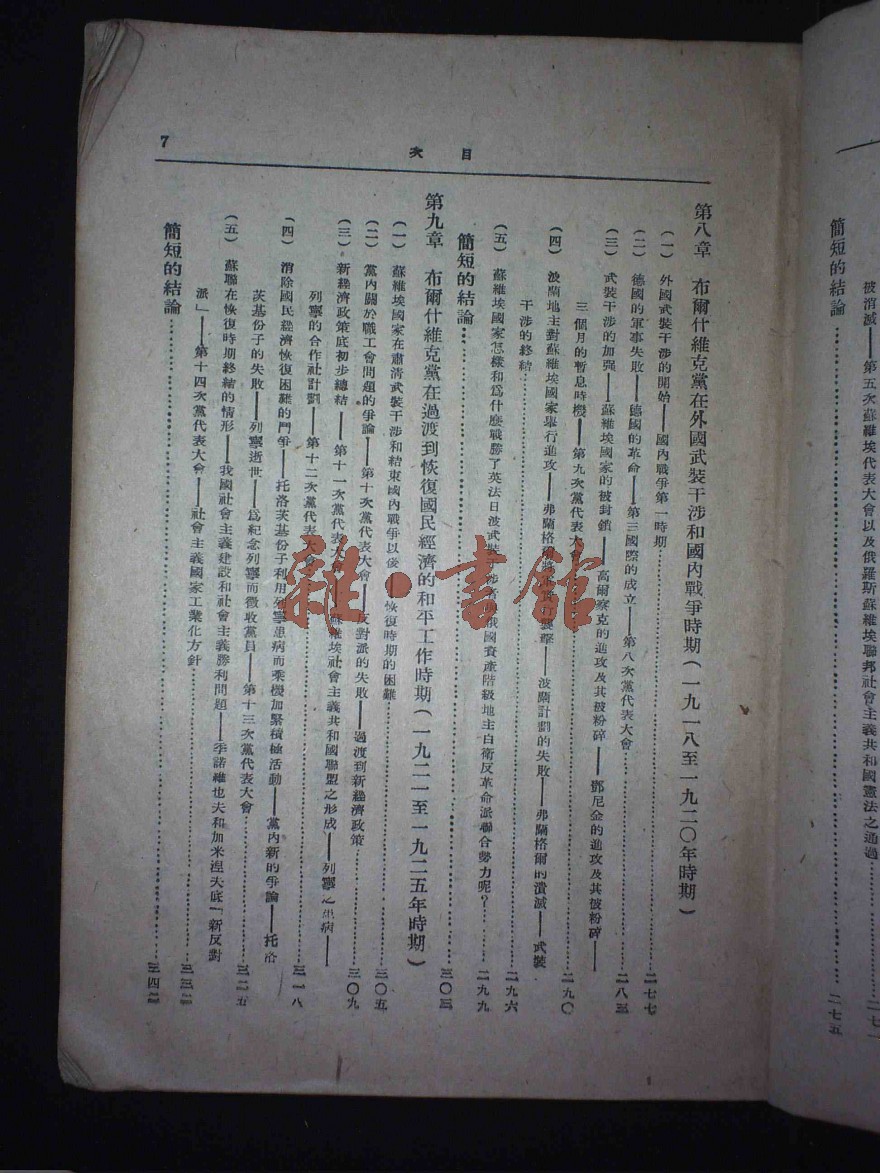 被消滅——第五次蘇維埃代表大會以及俄羅斯蘇維埃聯邦社會主義共和國憲法之通過
簡短的結論…………二七五
目次
7
第八章 布爾什維克黨在外國武裝干涉和國內戰爭時期(一九一八至一九二〇年時期)
(一) 外國武裝干涉的開始——國內戰爭第一時期…………二七七
(二) 德國的軍事失敗——德國的革命——第三國際的成立——第八次黨代表大會…………二八三
(三) 武裝干涉的加强——蘇維埃國家的被封鎖——高爾察克的進攻及其被粉碎——鄧尼金的進攻及其被粉碎——
三個月的暫息時機——第九次黨代表大…………二九〇
(四) 波蘭地主對蘇維埃國家舉行進攻——弗蘭格爾將軍——波蘭計劃的失敗——弗蘭格爾的潰滅——武裝
干涉的終結…………二九六
(五) 蘇維埃國家怎樣和爲什麽戰勝了英法日波武裝干涉者俄國資產階級地主白衛反革命派聯合勢力呢?…………二九九
簡短的結論…………三〇三
第九章 布爾什維克黨在過渡到恢復國民經濟的和平工作時期(一九二一至一九二五年時期)
(一) 蘇維埃國家在肅清武裝干涉和結束國內戰爭以後 恢復時期的困難…………三〇五
(二) 黨內關於職工會問題的爭論——第十次黨代表大會——反對派的失敗——過渡到新經濟政策…………三〇九
(三) 新經濟政策底初步總結——第十一次黨代表大會——蘇維埃社會主義共和國聯盟之形成——列寧之患病——
列寧的合作社計劃——第十二次黨代表大會…………三一八
(四) 消除國民經濟恢復困難的鬥爭——托洛茨基份子利用列寧患病而乘機加緊積極活動——黨內新的爭論——托洛
茨基份子的失敗——列寧逝世——爲紀念列寧而徵收黨員——第十三次黨代表大會…………三二五
(五) 蘇聯在恢復時期終結的情形——我國社會主義建設和社會主義勝利問題——季諾維也夫和加米涅夫底「新反對
派」——第十四次黨代表大會——社會主義國家工業化方針…………三三二
簡短的結論…………三四二
雜·書館